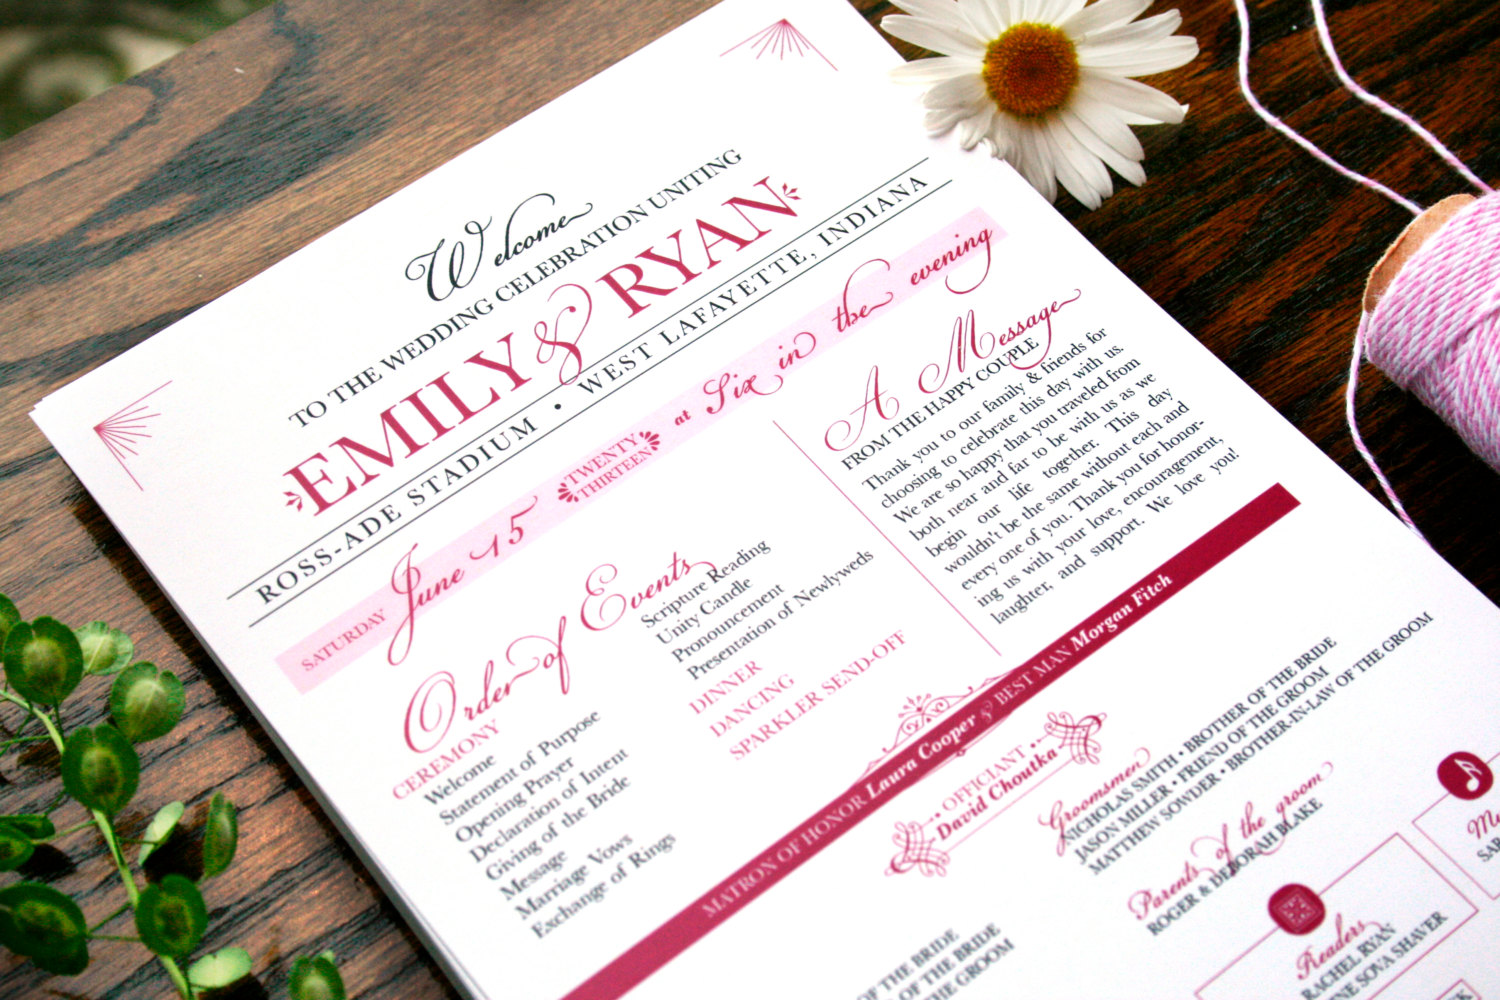 Welcome
TO THE WEDDING CELEBRATION UNITING
EMILY & RYAN
ROSS-ADE STADIUM • WEST LAFAYETTE, INDIANA
SATURDAY June 15 TWENTY THIRTEEN at Six in the evening
Order of Events
CEREMONY
Welcome
Statement of Purpose
Opening Prayer
Declaration of Intent
Giving of the Bride
Message
Marriage Vows
Exchange of Rings
Scripture Reading
Unity Candle
Pronouncement
Presentation of Newlyweds
DINNER
DANCING
SPARKLER SEND-OFF
A Message
FROM THE HAPPY COUPLE
Thank you to our family & friends for
choosing to celebrate this day with us.
We are so happy that you traveled from
both near and far to be with us as we
begin our life together. This day
wouldn't be the same without each and
every one of you. Thank you for honor-
ing us with your love, encouragement,
laughter, and support. We love you!
MATRON OF HONOR Laura Cooper & BEST MAN Morgan Fitch
• OFFICIANT •
• David Choutka •
Groomsmen
NICHOLAS SMITH • BROTHER OF THE BRIDE
JASON MILLER • FRIEND OF THE GROOM
MATTHEW SOWDER • BROTHER-IN-LAW OF THE GROOM
Parents of the groom
ROGER & DEBORAH BLAKE
Readers
RACHEL RYAN
SOVA SHAVER
OF THE BRIDE
OF THE BRIDE
GROOM